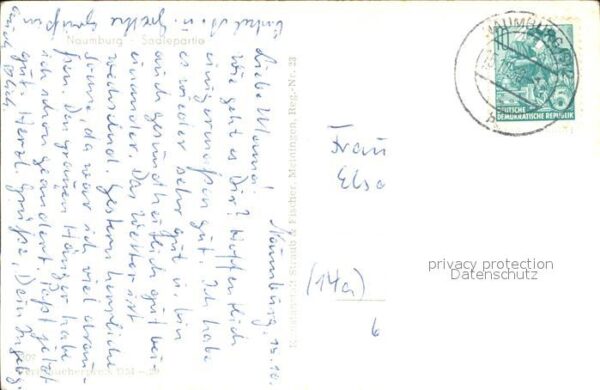 Naumburg, 13.10.
Liebe Mama!
Wie geht es Dir? Hoffentlich
einigermaßen gut. Ich habe
es wieder sehr gut u. bin
auch gesundheitlich gut bei
einander. Das Wetter ist
wechselnd. Gestern herrliche
Sonne, da war ich viel drau-
ßen. Den grauen Hänger habe
ich schon geändert. Paßt jetzt
gut. Herzl. Grüße, Dein
Naumburg - Saalepartie
Straub & Fischer, Meiningen, Reg.-Nr. 23
Verbraucherpreis DM -.20
NAUMBURG
DEUTSCHE
DEMOKRATISCHE REPUBLIK
Frau
Elsa
(14a)
6
privacy protection
Datenschutz